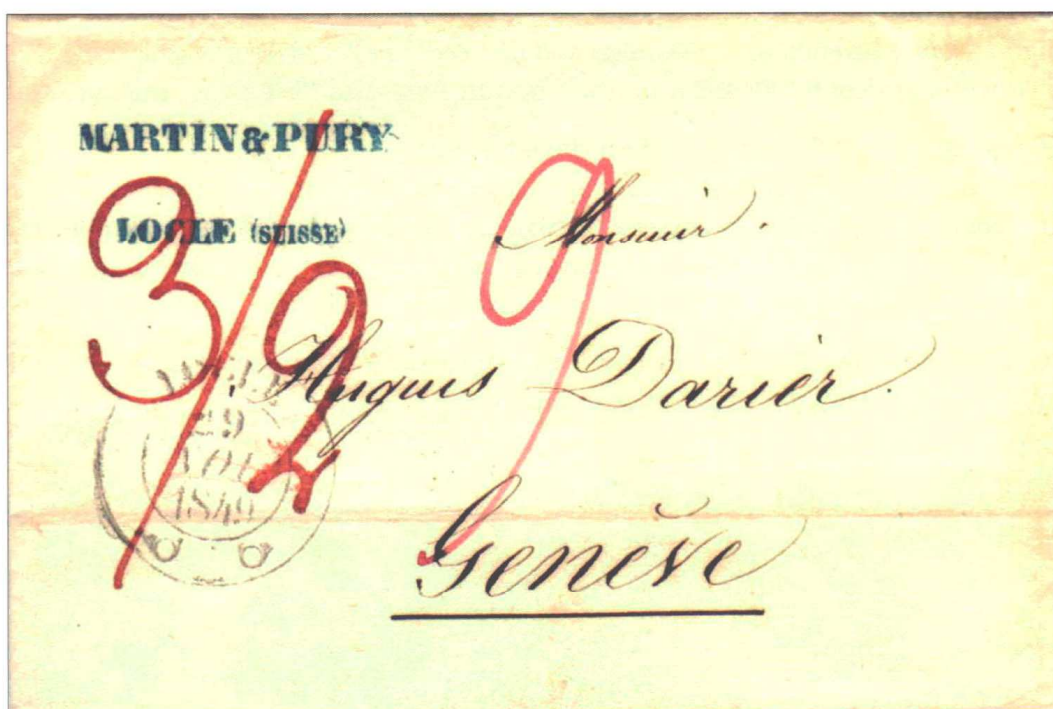 MARTIN & PURY
LOCLE (SUISSE)
3/2
9
Monsieur.
Hugues Darier.
Genève
29
AOUT
1849